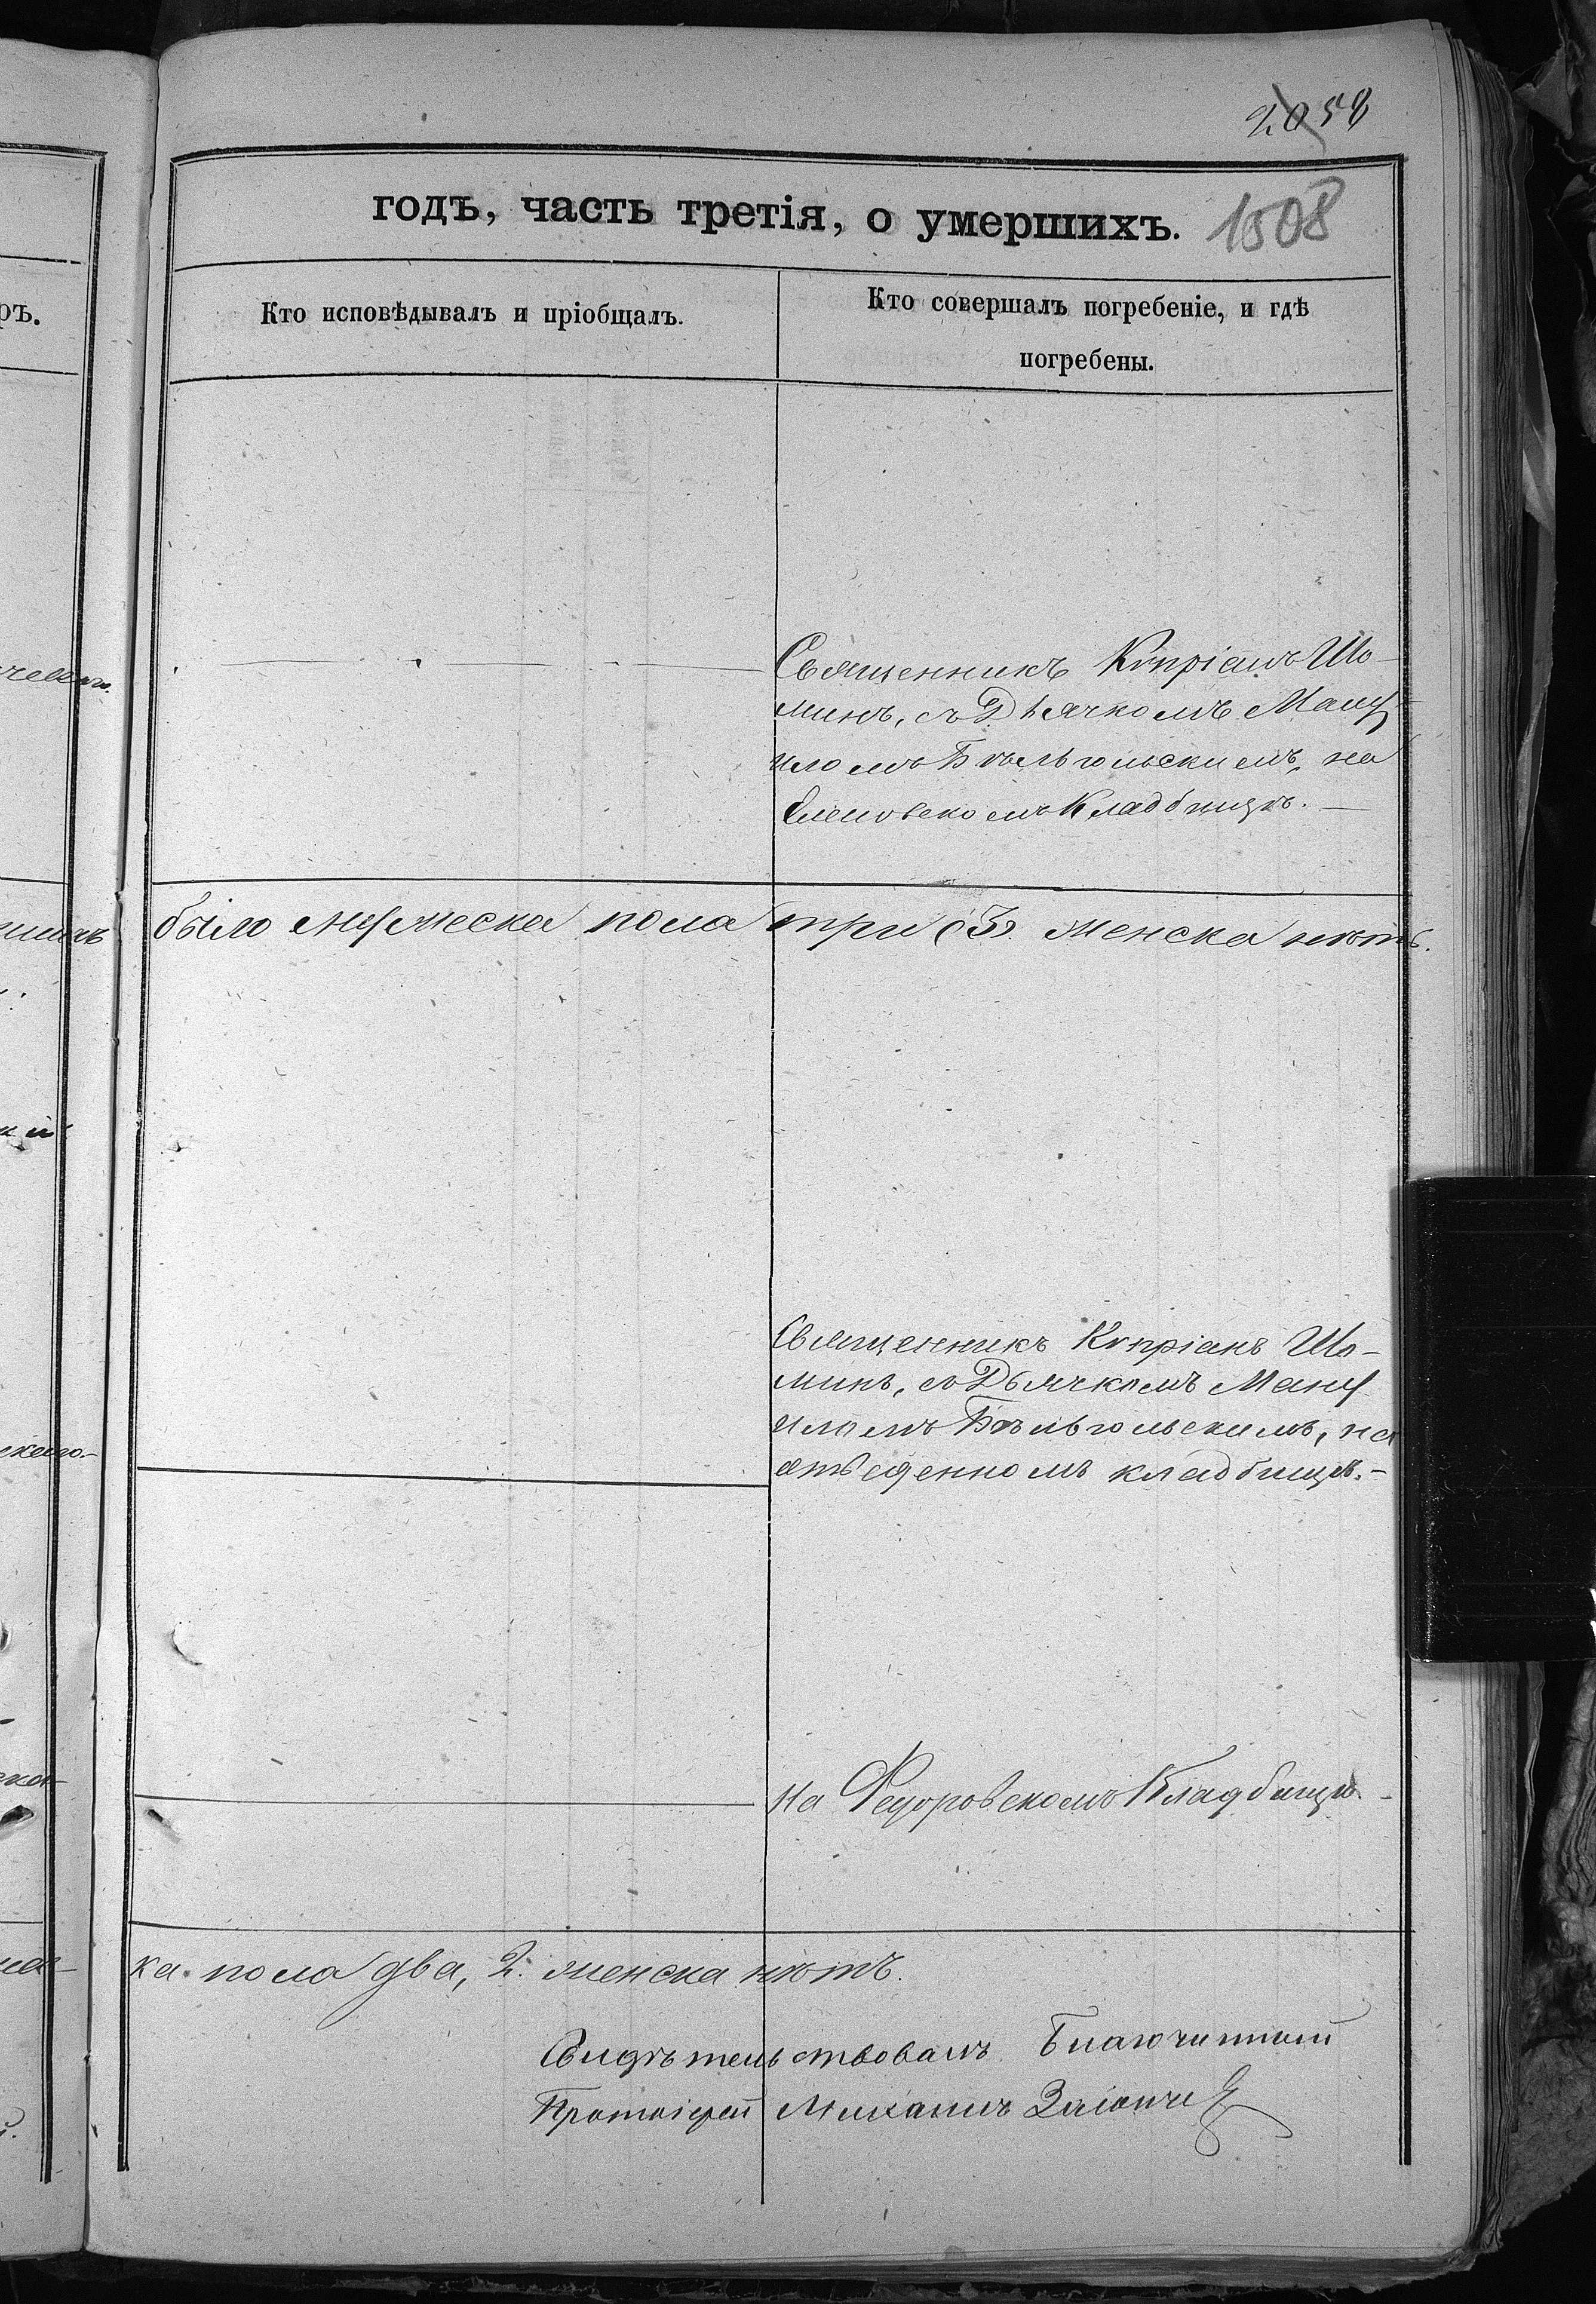 2058
годъ, часть третія, о умершихъ. 1508
ръ.
Кто исповѣдывалъ и пріобщалъ.
Кто совершалъ погребеніе, и гдѣ
погребены.
Священникъ Кѵпріанъ Шо-
минъ, съ Дьячкомъ Ману
иломъ Бѣльгольскимъ, на
Кладбищѣ.
было мужеска пола три (3). женска нѣтъ.
Священникъ Кѵпріанъ Шо-
минъ, съ Дьячкомъ Ману
иломъ Бѣльгольскимъ, на
отведенномъ кладбищѣ.-
на Федоровскомъ Кладбищѣ.-
ка пола два, 2. женска нѣтъ.
Свидѣтельствовалъ Благочинный
Протоіерей Михаилъ